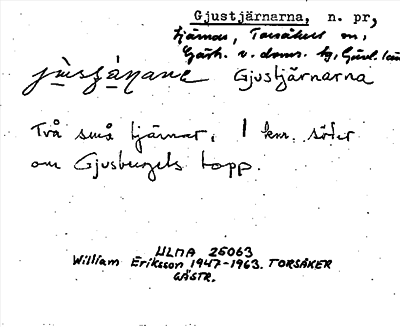 Gjustjärnarna, n. pr,
tjärnar, Torsåkers sn,
Gästr. v. doms. hg, Gävl. län
Gjustjärnarna
Två små tjärnar, 1 km. söder
om Gjusburgets topp.
ULMA 25063
William Eriksson 1947-1963. TORSÅKER
GÄSTR.